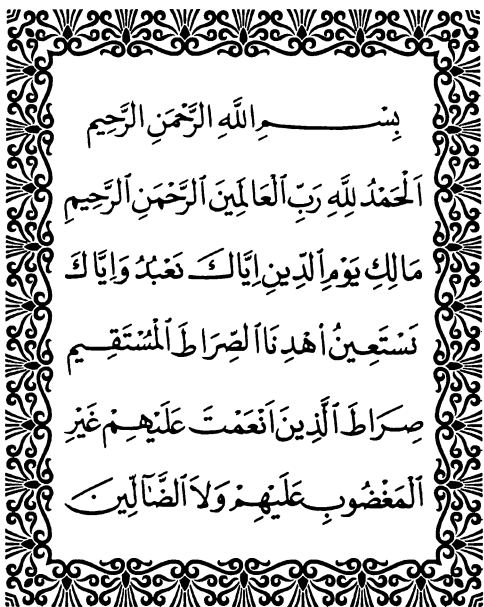 بِسْمِ اللَّهِ الرَّحْمَنِ الرَّحِيمِ
اَلْحَمْدُ لِلَّهِ رَبِّ الْعَالَمِينَ الرَّحْمَنِ الرَّحِيمِ
مَالِكِ يَوْمِ الدِّينِ اِيَّاكَ نَعْبُدُ وَاِيَّاكَ
نَسْتَعِينُ اُهْدِنَا الصِّرَاطَ الْمُسْتَقِيمِ
صِرَاطَ الَّذِينَ اَنْعَمْتَ عَلَيْهِمْ غَيْرِ
الْمَغْضُوبِ عَلَيْهِمْ وَلاَ الضَّآلِّينَ